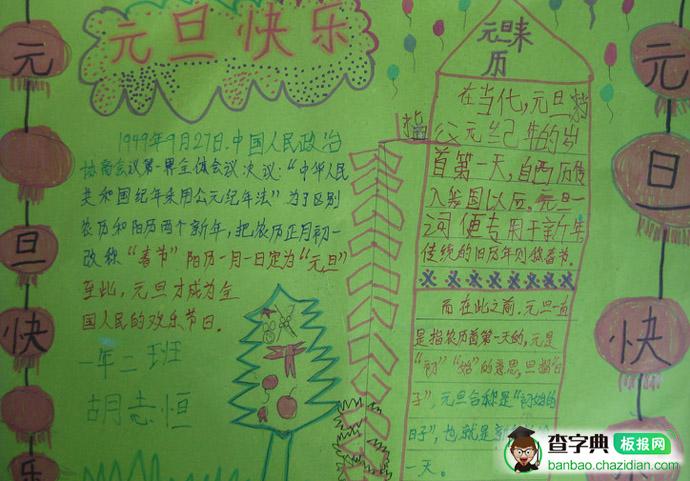 元旦快乐
元
旦
快
乐
1949年9月27日.中国人民政治
协商会议第一界全体会议决议:“中华人民
共和国纪年采用公元纪年法”为了区别
农历和阳历两个新年,把农历正月初一
改称“春节”阳历一月一日定为“元旦”
至此,元旦才成为全
国人民的欢乐节日。
一年二班
胡志恒
元旦来
历
在当代,元旦指
公元纪年的岁
首第一天,自西历传
入我国以后。元旦一
词便专用于新年
传统的旧历年则称春节。
而在此之前,元旦一直
是指农历首第一天的,元是
“初”“始”的意思,旦指“日
子”,元旦合称是“初始的
日子”,也就是
一天。
元
旦
快
查字典 板报网
banbao.chazidian.com